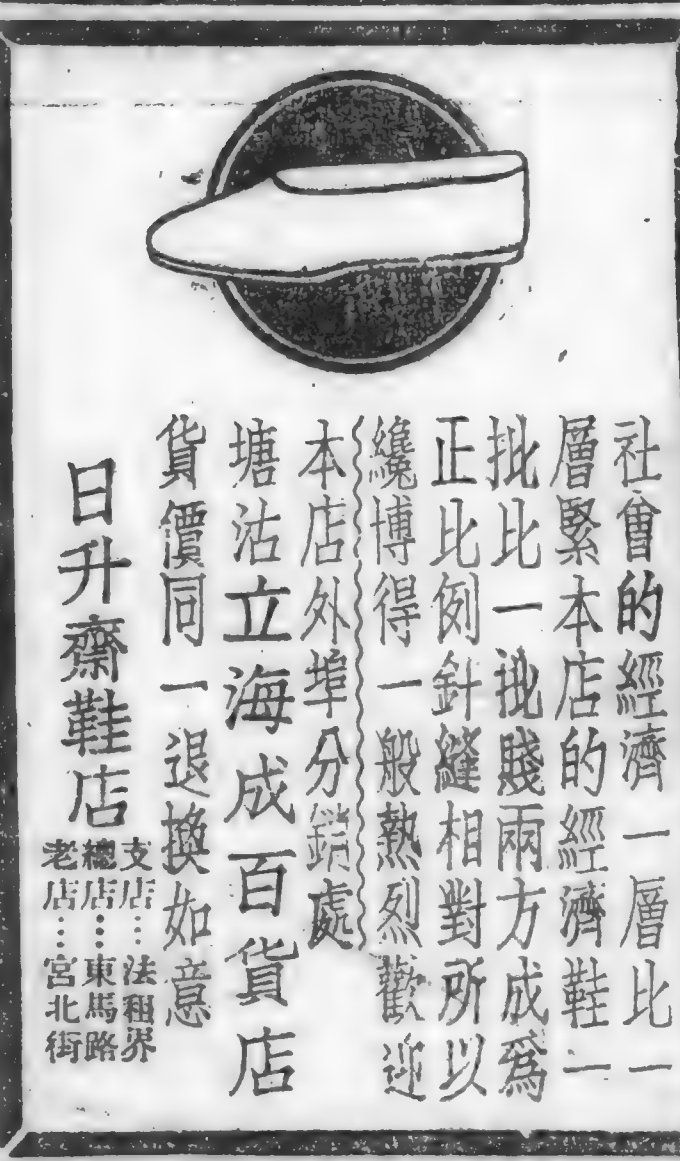 社會的經濟一層比一
層緊本店的經濟鞋一
批比一批賤兩方成爲
正比例針縫相對所以
纔博得一般熱烈歡迎
本店外埠分銷處
塘沽立海成百貨店
貨價同一退換如意
日升齋鞋店
支店⋯法租界
總店⋯東馬路
老店⋯宮北街